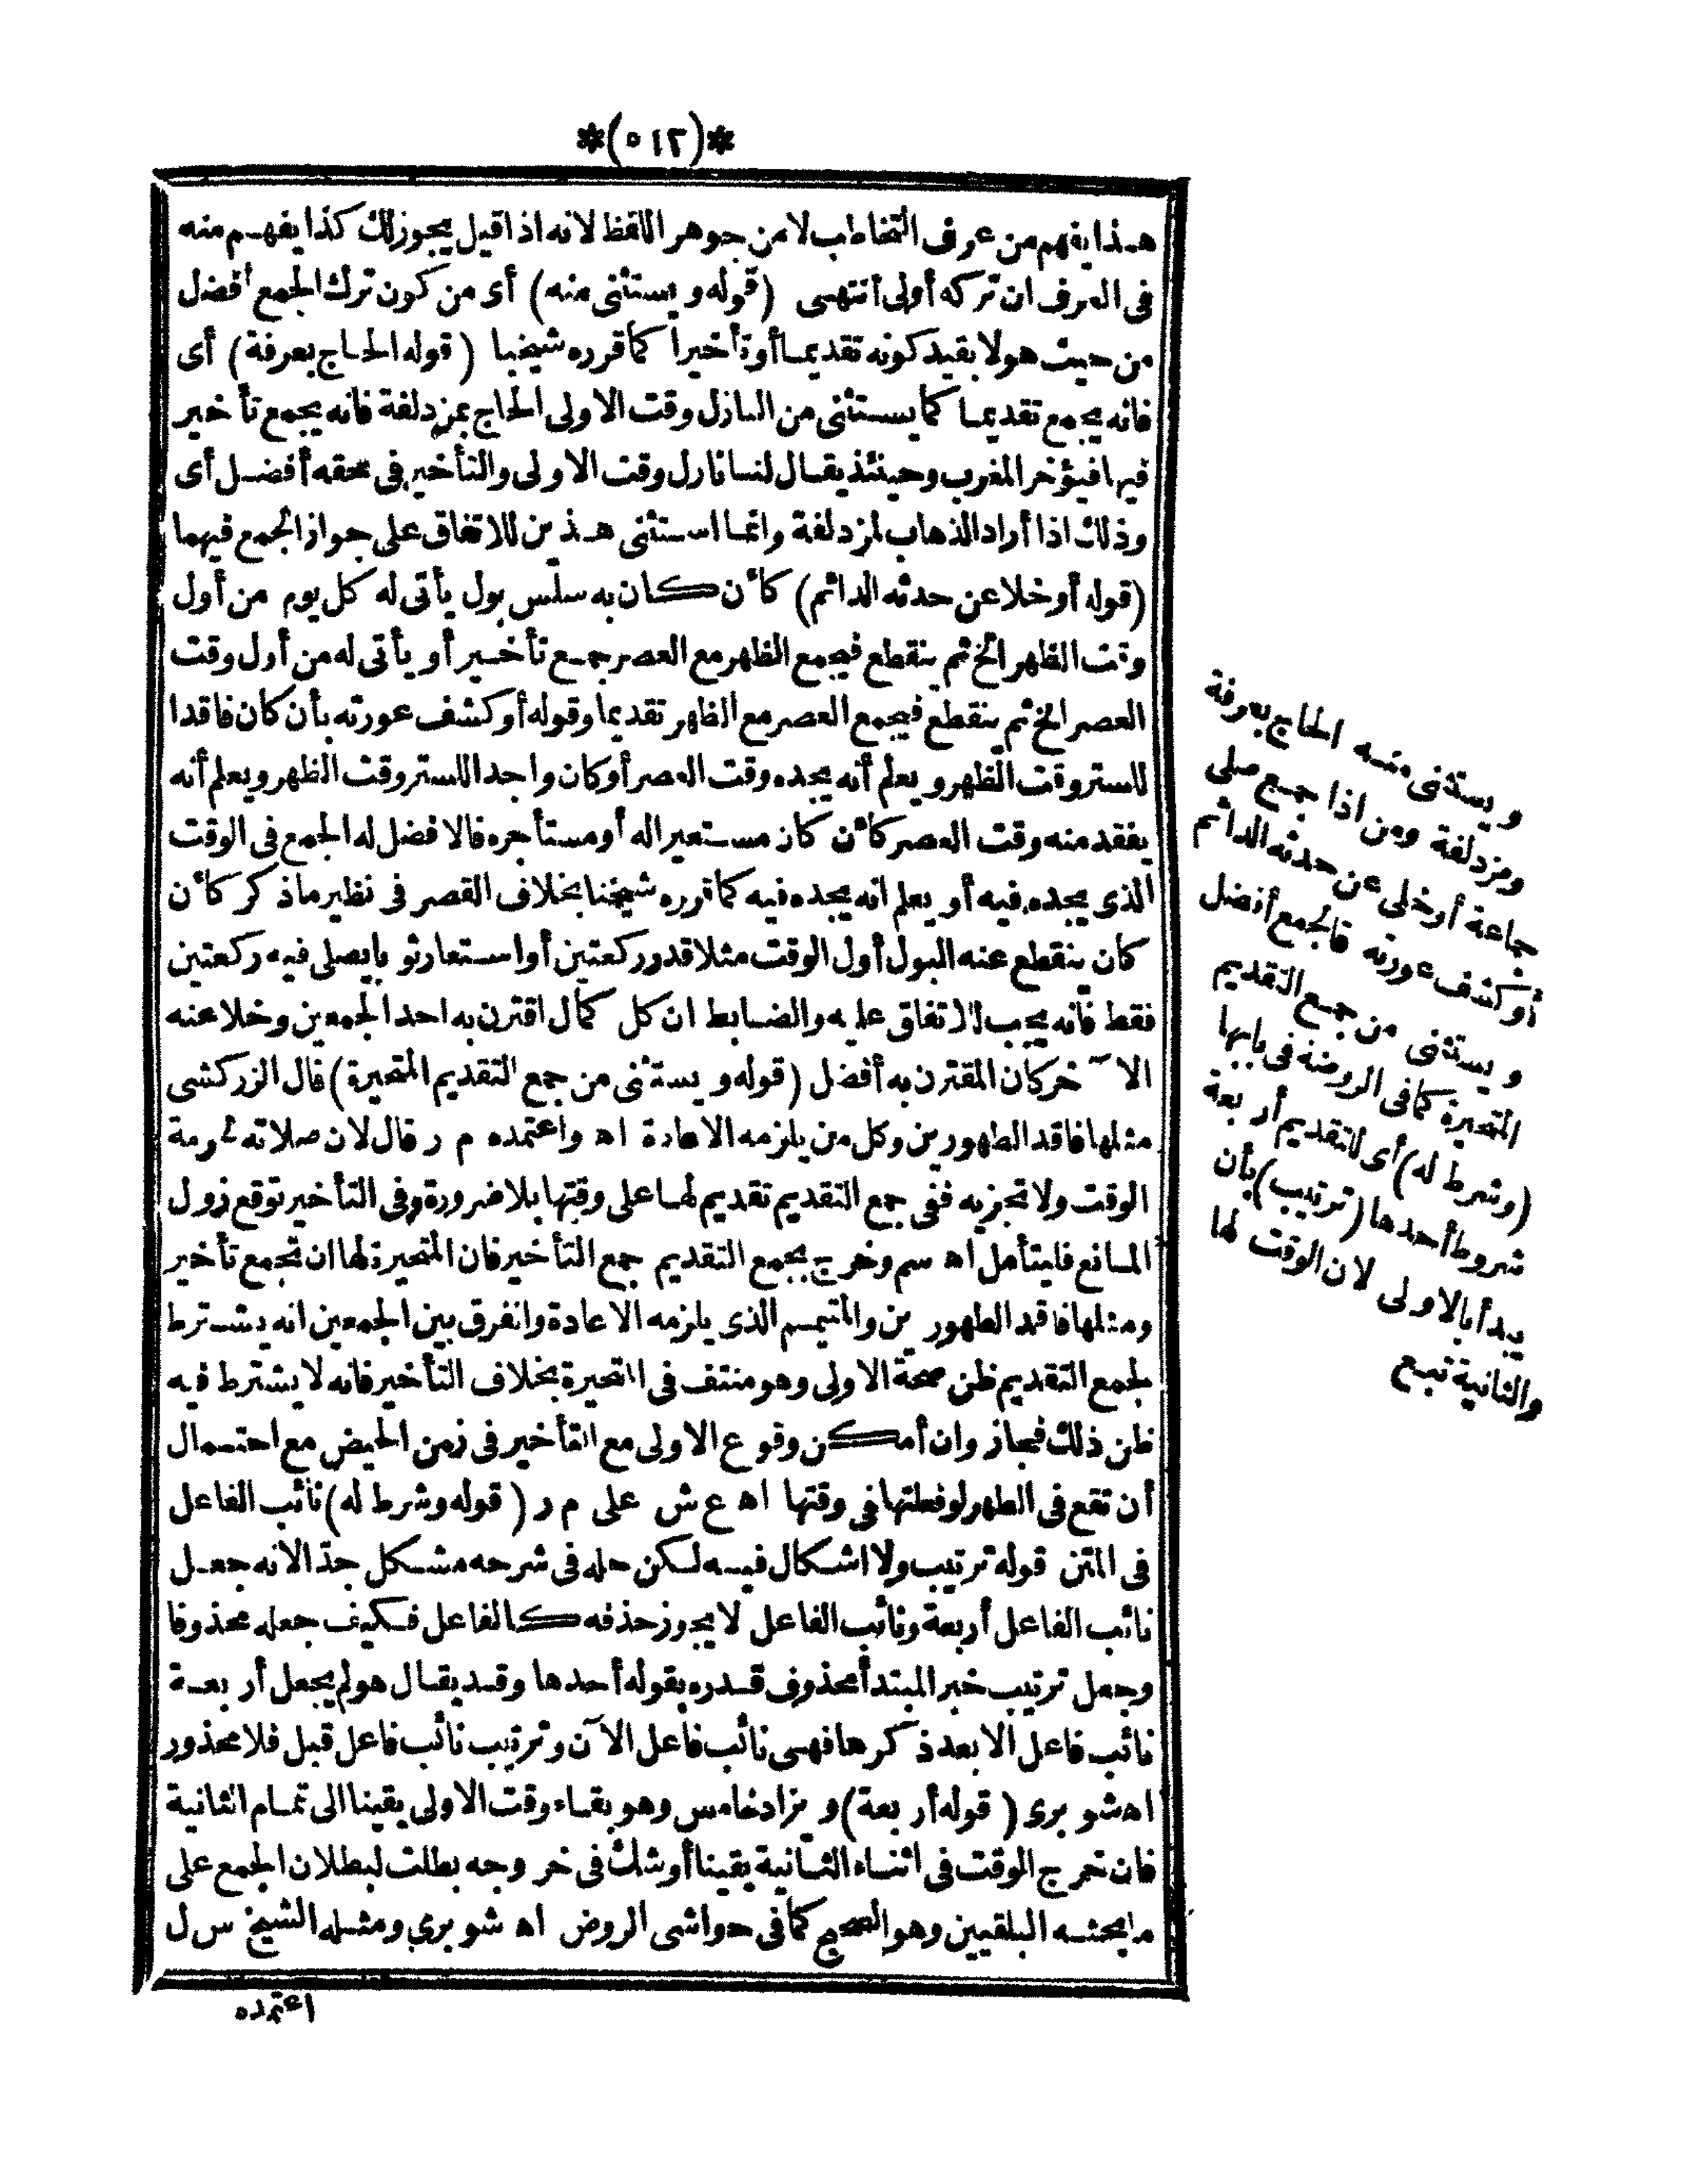 *(٥١٢)*
هذا يفهم من عرف التخاطب لا من جوهر اللفظ لانه اذا قيل يجوز لك كذا يفهم منه
فى العرف ان تركه أولى انتهى (قوله ويستثنى منه) أى من كون ترك الجمع أفضل
من حيث هو لا بقيد كونه تقديما أو تأخيرا كما قرره شيخنا (قوله الحاج بعرفة) أى
فانه يجمع تقديما كما يستثنى من النازل وقت الاولى الحاج بمزدلفة فانه يجمع تأخير
فيها فيؤخر المغرب وحينئذ يقال لنا نازل وقت الاولى والتأخير فى حقه أفضل أى
وذلك اذا أراد الذهاب لمزدلفة وانما استثنى هذين للاتفاق على جواز الجمع فيهما
(قوله أو خلا عن حدثه الدائم) كأن كان به سلس بول يأتى له كل يوم من أول
وقت الظهر الخ ثم ينقطع فيجمع الظهر مع العصر جمع تأخير أو يأتى له من أول وقت
العصر الخ ثم ينقطع فيجمع العصر مع الظهر تقديما وقوله أو كشف عورته بأن كان فاقدا
للستر وقت الظهر ويعلم أنه يجده وقت العصر أو كان واجدا للستر وقت الظهر ويعلم أنه
يفقد منه وقت العصر كأن كان مستعيرا له أو مستأجره فالافضل له الجمع فى الوقت
الذى يجده فيه أو يعلم انه يجده فيه كما قرره شيخنا بخلاف القصر فى نظير ما ذكر كأن
كان ينقطع عنه البول أول الوقت مثلا قدر ركعتين أو استعار ثوبا يصلى فيه ركعتين
فقط فانه يجب للاتفاق عليه والضابط ان كل كمال اقترن به احد الجمعين وخلا عنه
الآخر كان المقترن به أفضل (قوله ويستثنى من جمع التقديم المتحيرة) قال الزركشى
مثلها فاقد الطهورين وكل من يلزمه الاعادة اه واعتمده م ر قال لان صلاته لحرمة
الوقت ولا تجزيه ففى جمع التقديم تقديم لها على وقتها بلا ضرورة وفى التأخير توقع زول
المانع فليتأمل اه سم وخرج بجمع التقديم جمع التأخير فان المتحيرة لها ان تجمع تأخير
ومثلها فاقد الطهورين والمتيمم الذى يلزمه الاعادة والفرق بين الجمعين انه يشترط
لجمع التقديم ظن صحة الاولى وهو منتف فى المتحيرة بخلاف التأخير فانه لا يشترط فيه
ظن ذلك فجاز وان أمكن وقوع الاولى مع التأخير فى زمن الحيض مع احتمال
أن تقع فى الطهر لو فعلتها فى وقتها اه ع ش على م ر (قوله وشرط له) نائب الفاعل
فى المتن قوله ترتيب ولا اشكال فيه لكن حله فى شرحه مشكل جدّ الانه جعل
نائب الفاعل أربعة ونائب الفاعل لا يجوز حذفه كالفاعل فكيف جعله محذوفا
وجعل ترتيب خبر المبتدأ محذوف قدره بقوله أحدها وقد يقال هو لم يجعل أربعة
نائب فاعل الا بعد ذكرها فهى نائب فاعل الآن وترتيب نائب فاعل قبل فلا محذور
اه شوبرى (قوله أربعة) ويزاد خامس وهو بقاء وقت الاولى يقينا الى تمام الثانية
فان خرج الوقت فى اثناء الثانية يقينا أو شك فى خروجه بطلت لبطلان الجمع على
ما بحثه البلقينى وهو الصحيح كما فى حواشى الروض اه شوبرى ومثله الشيخ س ل
اعتمده
ويستثنى منه الحاج بعرفة
ومزدلفة ومن اذا جمع صلى
جماعة أو خلى عن حدثه الدائم
أو كشف عورته فالجمع أفضل
ويستثنى من جمع التقديم
المتحيرة كما فى الروضة فى بابها
(وشرط له) أى للتقديم أربعة
شروط أحدها (ترتيب) بأن
يبدأ بالاولى لان الوقت لها
والثانية تبع